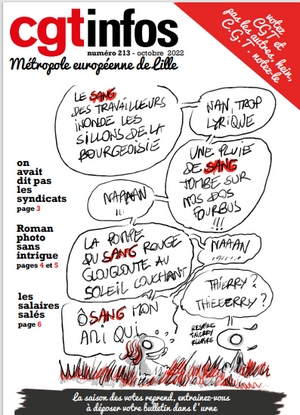 cgtinfos
numéro 213 - octobre 2022
Métropole européenne de Lille
votez
CGT et
pas les autres, hein,
C.G.T. notez-le
LE SANG
DES TRAVAILLEURS
INONDE LES
SILLONS DE LA
BOURGEOISIE
NAN, TROP
LYRIQUE
UNE PLUIE
DE SANG
TOMBE SUR
NOS DOS
FOURBUS
!!!
NAAAAN
LA POMPE
DU SANG ROUGE
GLOUGLOUTE AU
SOLEIL COUCHANT
NAAAN
Ô SANG MON
AMI QUI
THIERRY?
THIEEERRY?
RESPIRE
THIERRY
on
avait
dit pas
les
syndicats
page 3
Roman
photo
sans
intrigue
pages 4 et 5
les
salaires
salés
page 6
La saison des votes reprend, entraînez-vous
à déposer votre bulletin dans l'urne